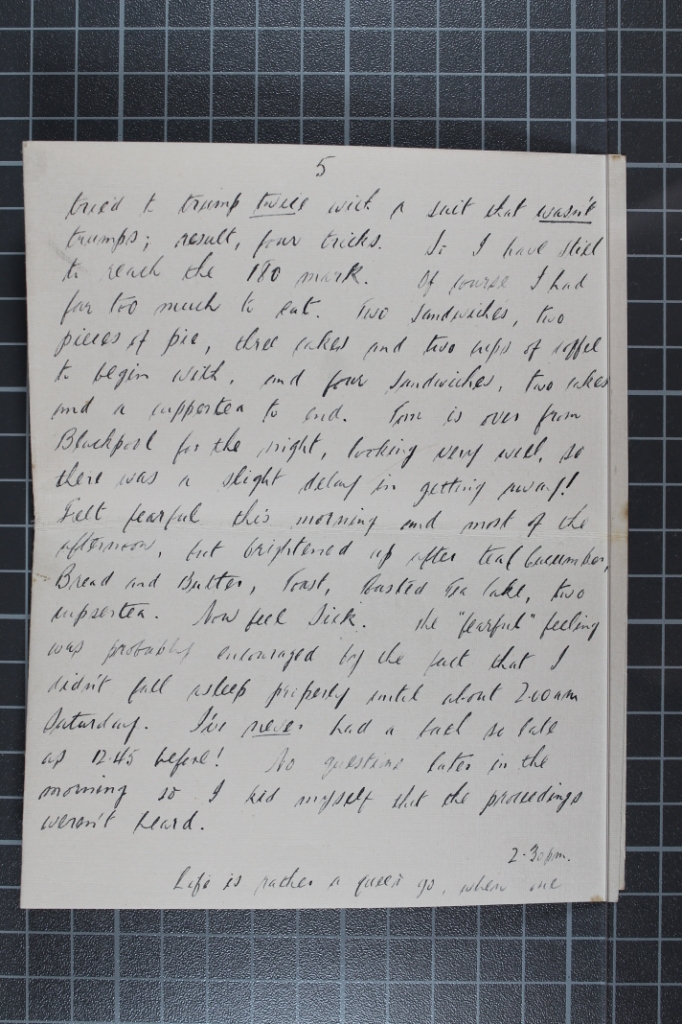 5
tried to trump twice with a suit that wasn't
trumps; result, four tricks. So I have still
to reach the 180 mark. Of course I had
far too much to eat. Two sandwiches, two
pieces of pie, three cakes and two cups of coffee
to begin with, and four sandwiches, two cakes
and a cuppertea to end. Tom is over from
Blackpool for the night, looking very well, so
there was a slight delay in getting away!
Felt fearful this morning and most of the
afternoon, but brightened up after tea (cucumber,
Bread and Butter, Toast, Toasted Tea Cake, two
cupsertea. Now feel sick. The "fearful" feeling
was probably encouraged by the fact that I
didn't fall asleep properly until about 2.00am
Saturday. I've never had a so late
as 12.45 before! No questions later in the
morning so I kid myself that the proceedings
weren't heard.
2.30pm.
Life is rather a queer go, when one